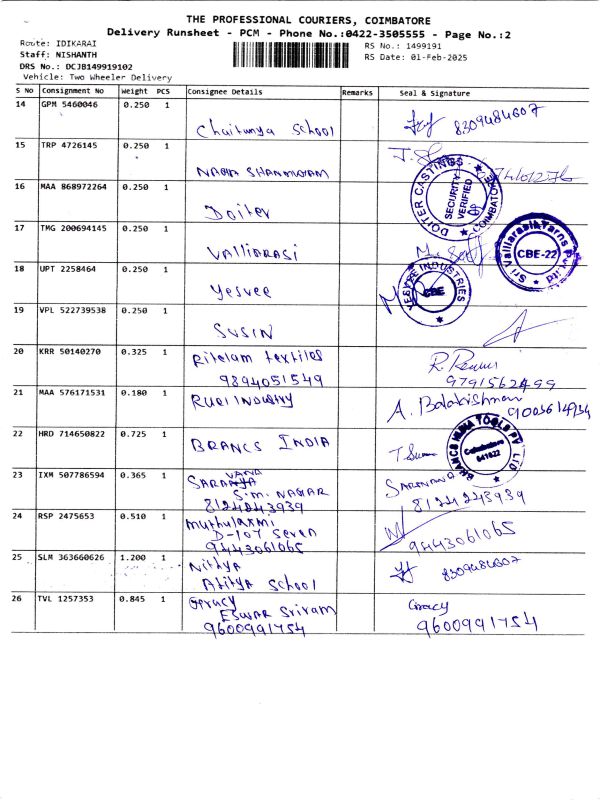 THE PROFESSIONAL COURIERS, COIMBATORE
Delivery Runsheet - PCM - Phone No.:0422-3505555 - Page No.:2
Route: IDIKARAI
RS No.: 1499191
Staff: NISHANTH
RS Date: 01-Feb-2025
DRS No.: DCJB149919102
Vehicle: Two Wheeler Delivery
S No Consignment No Weight PCS Consignee Details Remarks Seal & Signature
14 GPM 5460046 0.250 1
Chaitunya School 8309484607
15 TRP 4726145 0.250 1
NAGA SHANMUGAM
16 MAA 868972264 0.250 1
Doiter
DOITER CASTINGS COIMBATORE
SECURITY VERIFIED
17 TMG 200694145 0.250 1
Valliarasi
Sri Valliarasi Yarns Pvt Ltd
CBE-22
18 UPT 2258464 0.250 1
Yesvee
YESVEE INDUSTRIES
CBE
19 VPL 522739538 0.250 1
SUSIN
20 KRR 50140270 0.325 1
Ritelam textiles R.
9894051549 9791562499
21 MAA 576171531 0.180 1
INDUSTRY A. Balakishnan
22 HRD 714650822 0.725 1
BRANCS INDIA
BRANCS INDIA TOOLS PVT LTD
Coimbatore
641022
23 IXM 507786594 0.365 1
VANA
S.M. NAGAR
8124243939 8124243939
24 RSP 2475653 0.510 1
Muthulaxmi
D-107 Seven
9443061065 9443061065
25 SLM 363660626 1.200 1
Nithya 8309484607
Aditya School
26 TVL 1257353 0.845 1
Geracy
ESWAR Sriram
9600991754 9600991754